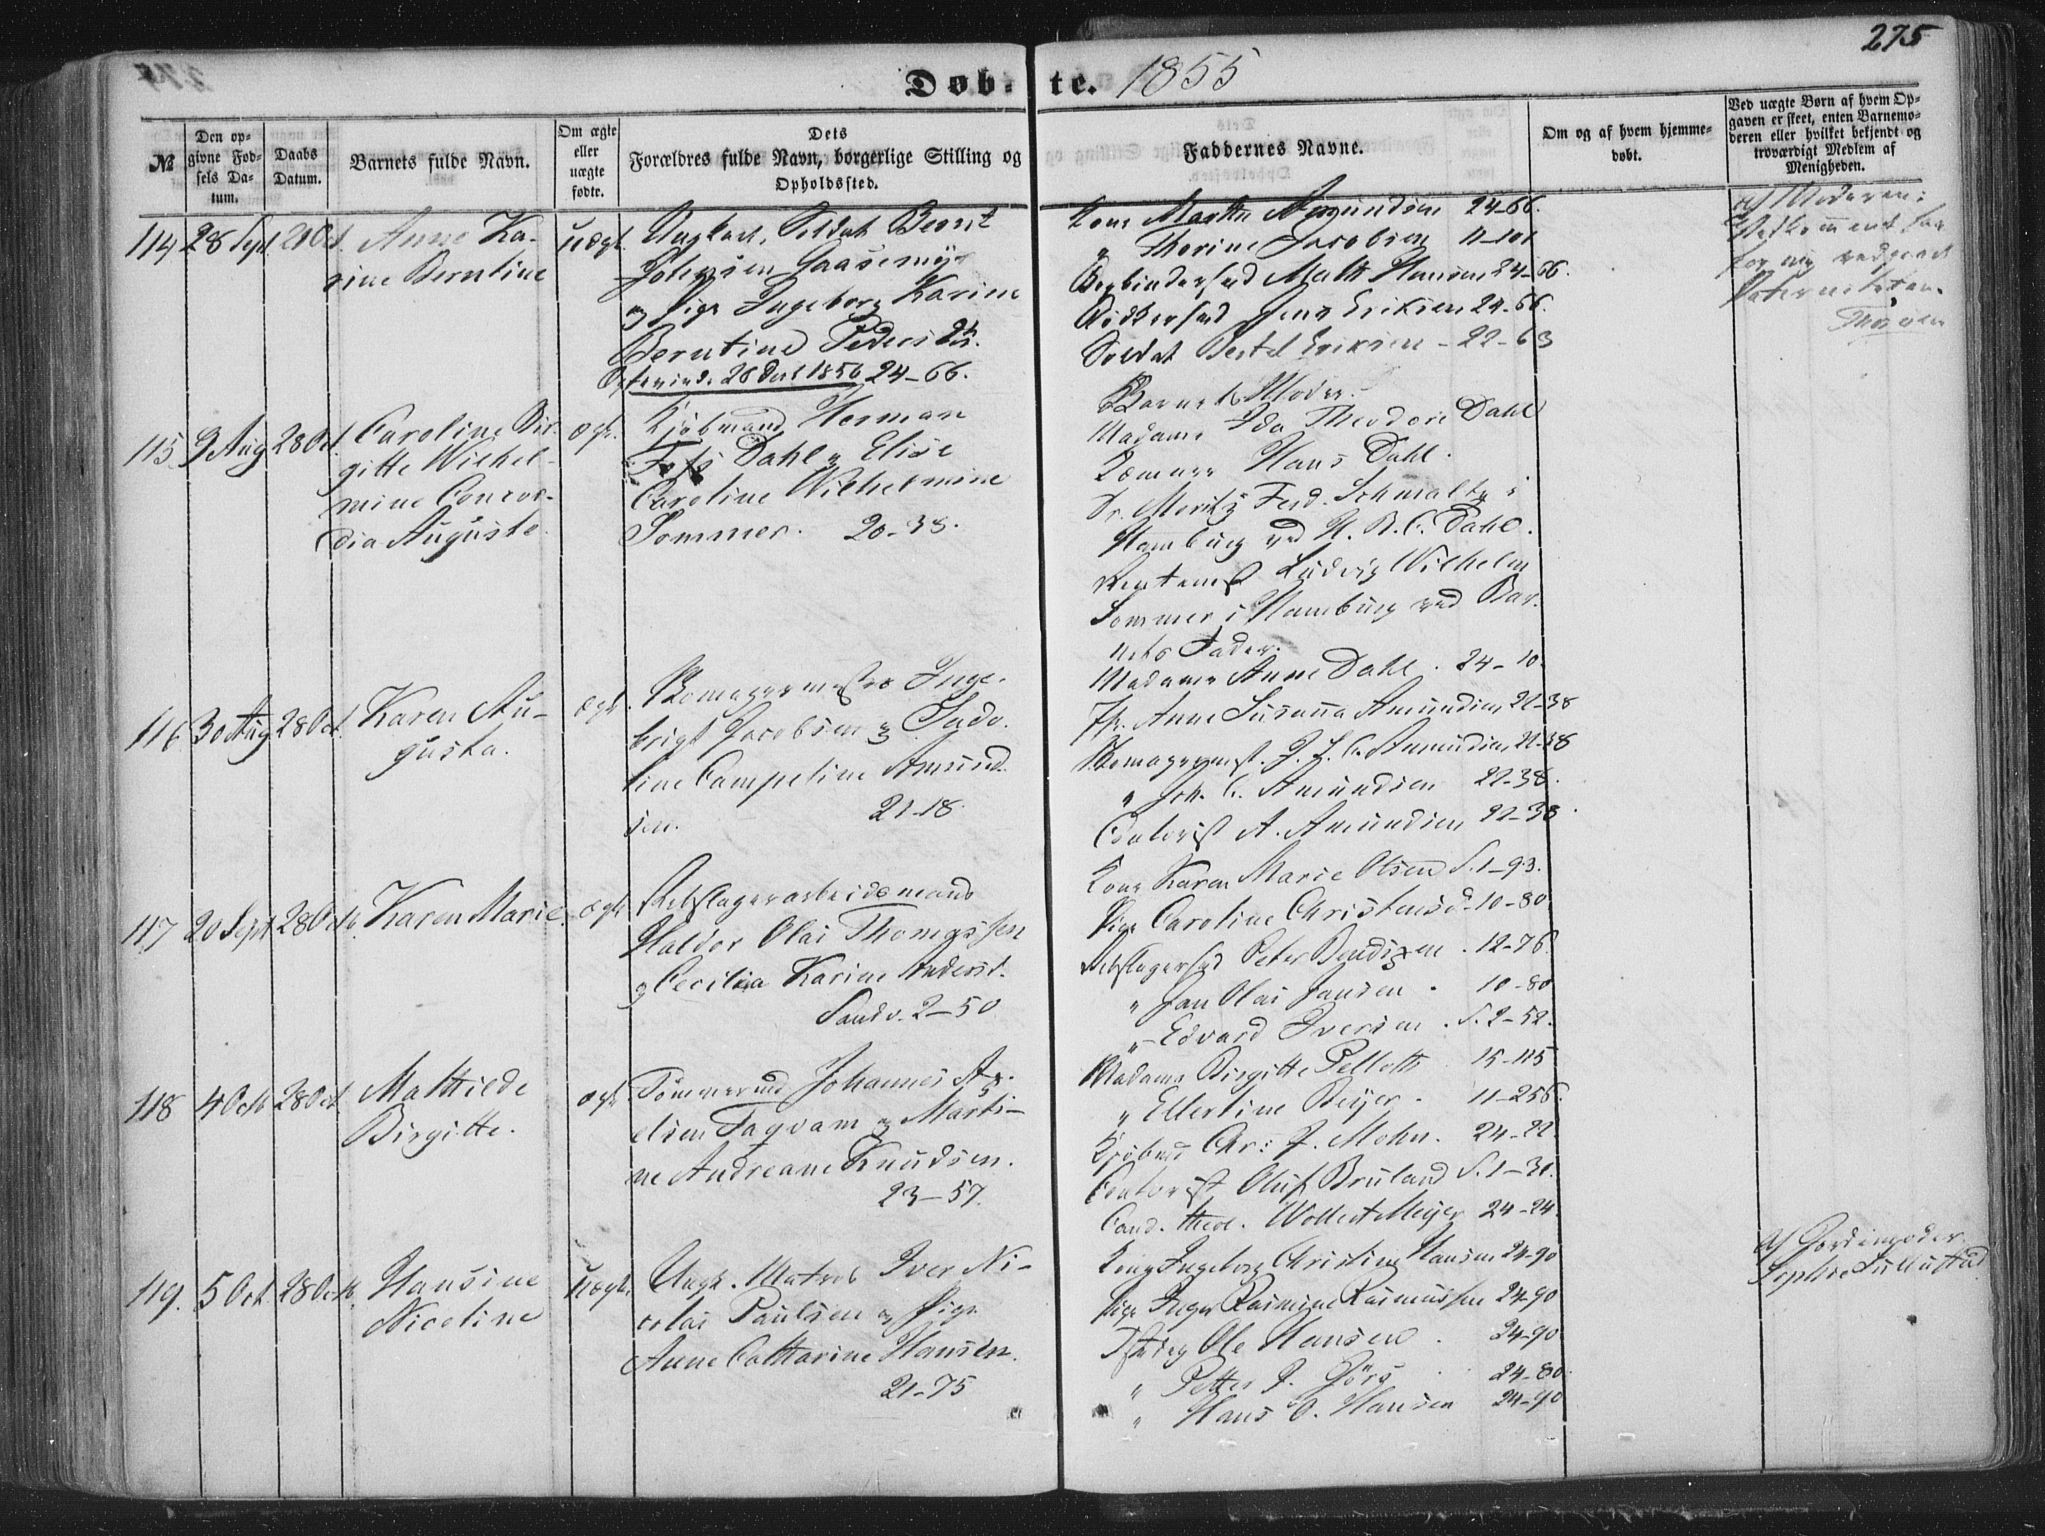 275
Døbte. 1855
№
Den opgivne Fødsels Datum.
Daabs Datum.
Barnets fulde Navn.
Om ægte eller uægte fødte.
Dets Forældres fulde Navn, borgerlige Stilling og Opholdssted.
Faddernes Navne.
Om og af hvem hjemmedøbt.
Ved uægte Børn af hvem Opgaven er skeet, enten Barnemoderen eller hvilket bekjendt og troværdigt Medlem af Menigheden.
114 28 Sept. 21 Oct.
Anne Ka-
rine Berntine
uægt.
Ungkarl, Soldat Bernt
Johansen Gaasemyr
og Pige Ingeborg Karine
Berntine Peders D.
28 Oct 1856 24-66.
Kone Marthe Amundsen 24-66.
" Thorine Jacobsen 11-101
Bogbindersvd Math Hansen 24-66.
Bødkersvd Jens Eriksen 24-66.
Soldat Bertel Eriksen - 22-63
af Moderen:
115. 9 Aug 28 Oct.
Caroline Bir-
gitte Wilhel-
mine Concor-
dia Auguste.
ægt.
Kjøbmand Herman
Foss Dahl og Elise
Caroline Wilhelmine
Sommer. 20-38.
Barnets Moder.
Madame Ida Theodore Dahl
Kæmner Hans Dahl.
Dr. Moritz Ferd. Schmaltz i
Hamburg ved H. B. C. Dahl.
Ludvig Wilhelm
Sommer i Hamburg ved Bar-
nets Fader.
Madame Anne Dahl. 24-10.
116 30 Aug 28 Oct.
Karen Au-
gusta.
ægt.
Skomagermester Inge-
brigt Jacobsen og Indo-
line Campeline Amund-
sen. 21-18.
Fr. Anne Susanna Amundsen 22-38
Skomagermst. J. L. C. Amundsen 22-38
" Joh. C. Amundsen 22-38.
Contorist A. Amundsen 22-38.
117 20 Sept 28 Octb.
Karen Marie.
ægt
Rebslagerarbeidsmand
Haldor Olai Thomassen
og Cecilia Karine Andersd.
Sandv. 2-50
Kone Karen Marie Olsen S. 1-93.
Pige Caroline Christensd. 10-80
Rebslagersvd Peter Bendixen. 12-76.
" Jan Olai Jansen. 10-80
" Edvard Iversen. S. 2-52.
118 4 Octb 28 Oct
Mathilde
Birgitte.
ægt
Tømmermd Johannes Ax-
elsen Fagvam og Marti-
ne Andreane Knudsen.
23-57.
Madame Birgitte Pelloth 15-115
" Ellertine Beijer. 11-256.
Kjøbmd Chr: J. Mohn. 24-22.
Contorist Oluf Bruland S. 1-30.
Cand. theol. Wollert Meijer 24-24.
119. 5 Oct. 28 Octb.
Hansine
Nicoline
uægt.
Ungk. Matros Iver Ni-
colai Paulsen og Pige
Anne Cathrine Hansen.
21-75
Kone Ingeborg Christine Hansen 24-90
Pige Inger Rasmine Rasmussen 24-90
Ole Hansen. 24-90
" Petter J. Görs. 24-80.
" Hans O. Hansen 24-90
Af Jordemoder
Sophie Lullustad